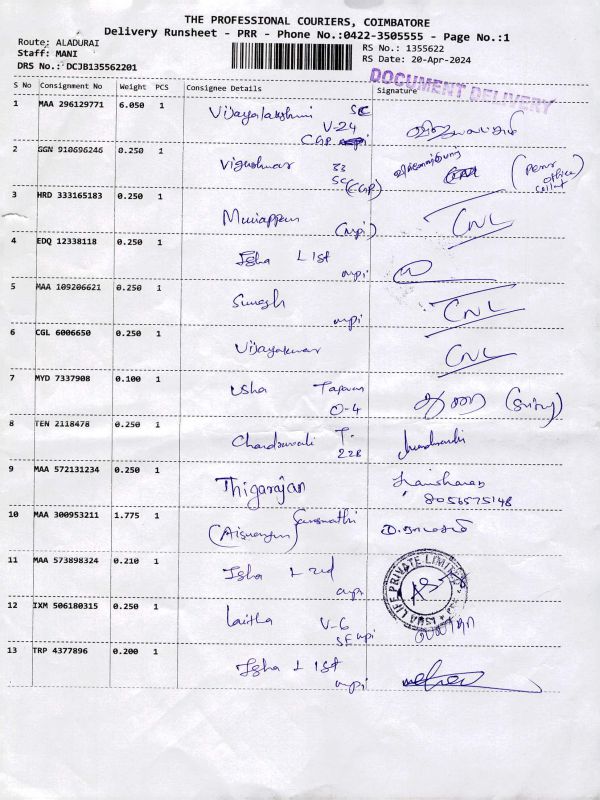 THE PROFESSIONAL COURIERS, COIMBATORE
Delivery Runsheet - PRR - Phone No.:0422-3505555 - Page No.:1
Route: ALADURAI
Staff: MANI
DRS No.: DCJB135562201
RS No.: 1355622
RS Date: 20-Apr-2024
DOCUMENT DELIVERY
S No Consignment No Weight PCS Consignee Details Signature
1 MAA 296129771 6.050 1 Vijayalakshmi
V-24
2 GGN 910696246 0.250 1 Vigneshwar 33
(CGP)
3 HRD 333165183 0.250 1 Muniappan (mpi) CNL
4 EDQ 12338118 0.250 1 Isha L 1st
mpi
5 MAA 109206621 0.250 1 Suresh mpi CNL
6 CGL 6006650 0.250 1 Vijayakumar CNL
7 MYD 7337908 0.100 1 Usha
O-4
8 TEN 2118478 0.250 1 T-
228
9 MAA 572131234 0.250 1 Thigarajan
8056575148
10 MAA 300953211 1.775 1 Saraswathi
11 MAA 573898324 0.210 1 Isha L 2nd
mpi
ISHA LIFE PRIVATE LIMITED
12 IXM 506180315 0.250 1 Lalitha V-6
mpi
13 TRP 4377896 0.200 1 Isha L 1st
mpi